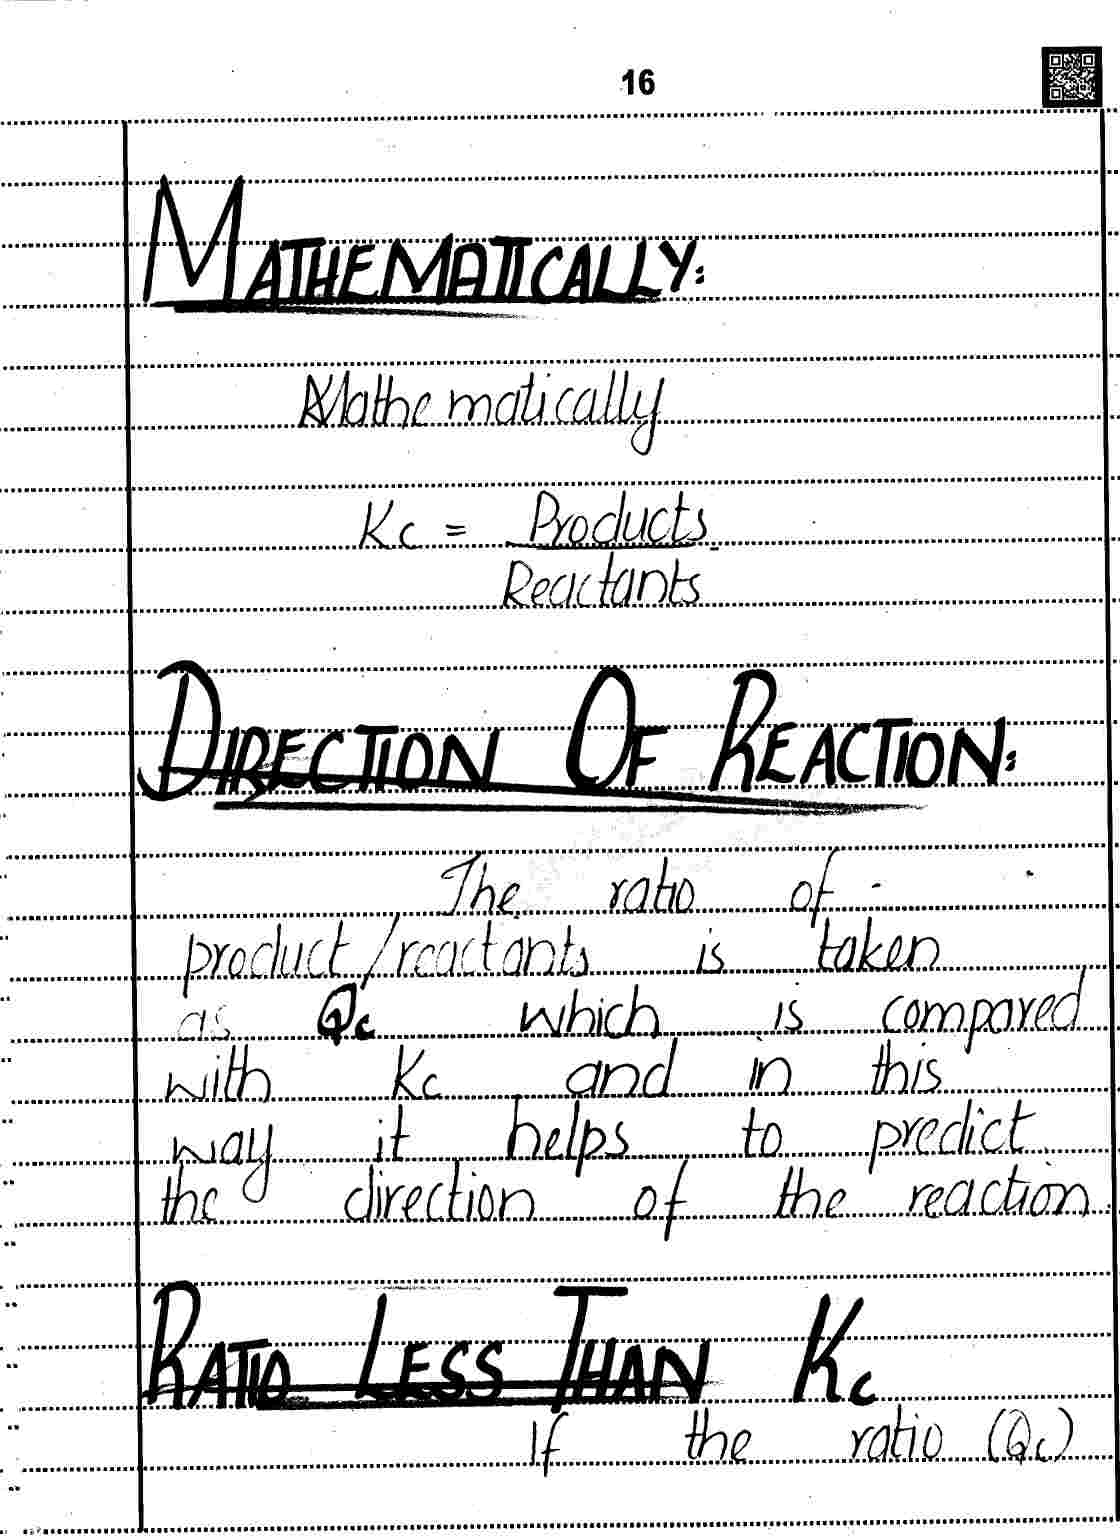 16
MATHEMATICALLY:
Mathematically
Kc = Products
Reactants
DIRECTION OF REACTION:
The ratio of
product/reactants is taken
as Qc which is compared
with Kc and in this
way it helps to predict
the direction of the reaction
RATIO LESS THAN Kc
If the ratio (Qc)